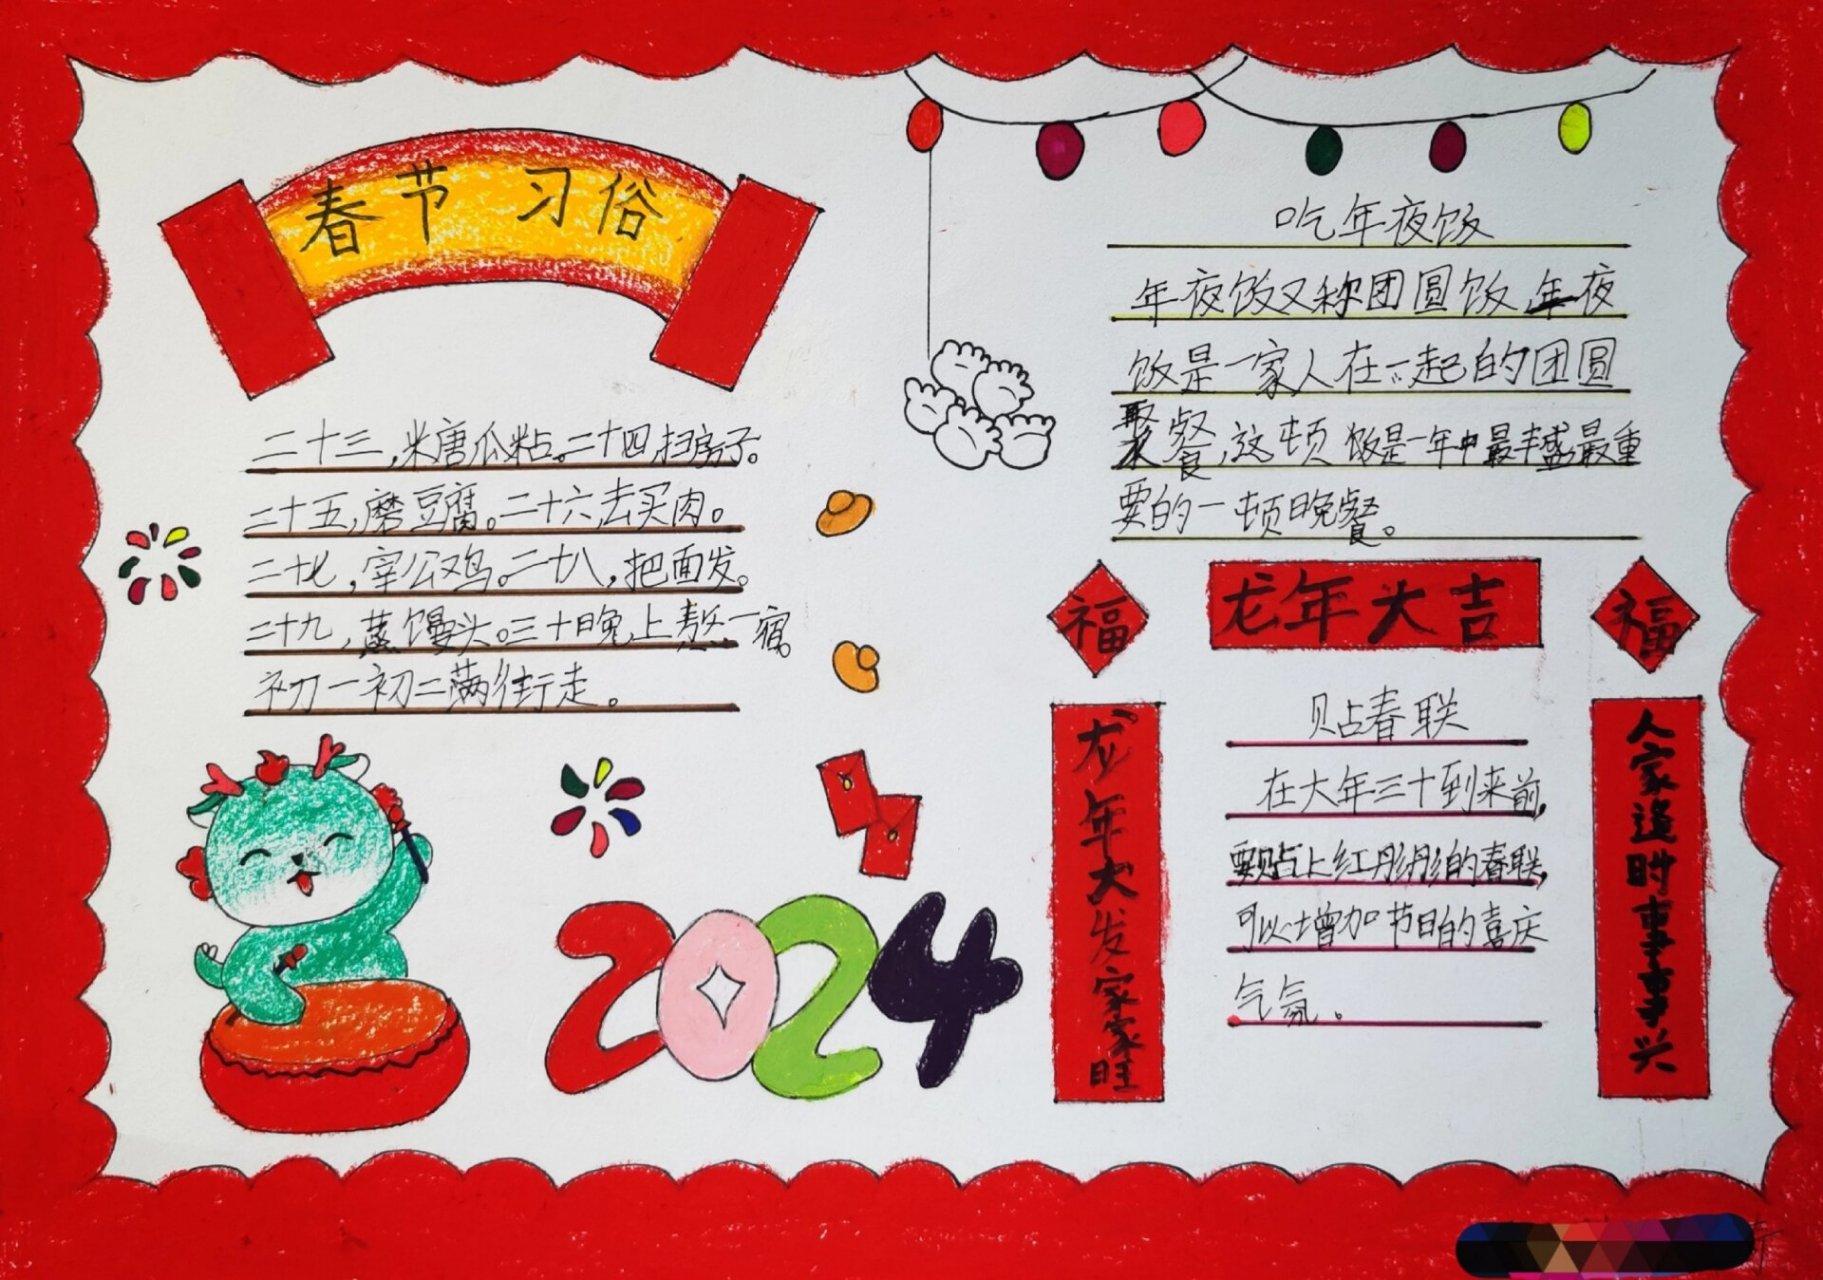 春节 习俗
二十三,米唐瓜粘。二十四,扫房子。
二十五,磨豆腐。二十六,去买肉。
二十七,宰公鸡。二十八,把面发。
二十九,蒸馒头。三十晚上熬一宿。
初一初二满街走。
2024
吃年夜饭
年夜饭又称团圆饭,年夜
饭是一家人在一起的团圆
聚餐,这顿饭是一年中最丰盛最重
要的一顿晚餐。
福
龙年大吉
福
龙年大发家家旺
贴春联
在大年三十到来前,
要贴上红彤彤的春联,
可以增加节日的喜庆
气氛。
人家逢时事事兴